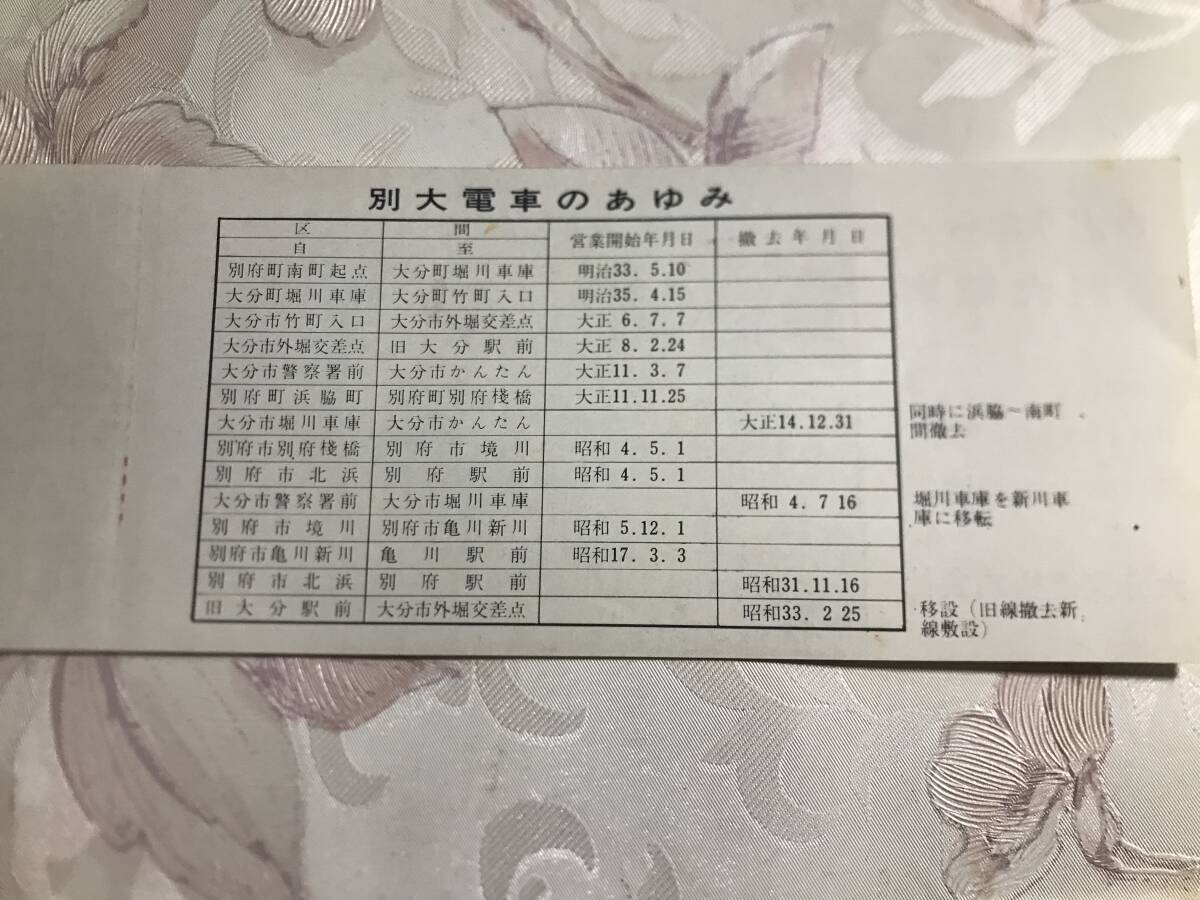 別大電車のあゆみ
区 間 営業開始年月日 撤去年月日
自 至
別府町南町起点 大分町堀川車庫 明治33.5.10
大分町堀川車庫 大分町竹町入口 明治35.4.15
大分市竹町入口 大分市外堀交差点 大正 6.7.7
大分市外堀交差点 旧大分駅前 大正 8.2.24
大分市警察署前 大分市かんたん 大正11.3.7
別府町浜脇町 別府町別府棧橋 大正11.11.25
大分市堀川車庫 大分市かんたん 大正14.12.31 同時に浜脇〜南町
間撤去
別府市別府棧橋 別府市境川 昭和 4.5.1
別府市北浜 別府駅前 昭和 4.5.1
大分市警察署前 大分市堀川車庫 昭和 4.7 16 堀川車庫を新川車
庫に移転
別府市境川 別府市亀川新川 昭和 5.12.1
別府市亀川新川 亀川駅前 昭和17.3.3
別府市北浜 別府駅前 昭和31.11.16
旧大分駅前 大分市外堀交差点 昭和33.2 25 移設（旧線撤去新
線敷設）